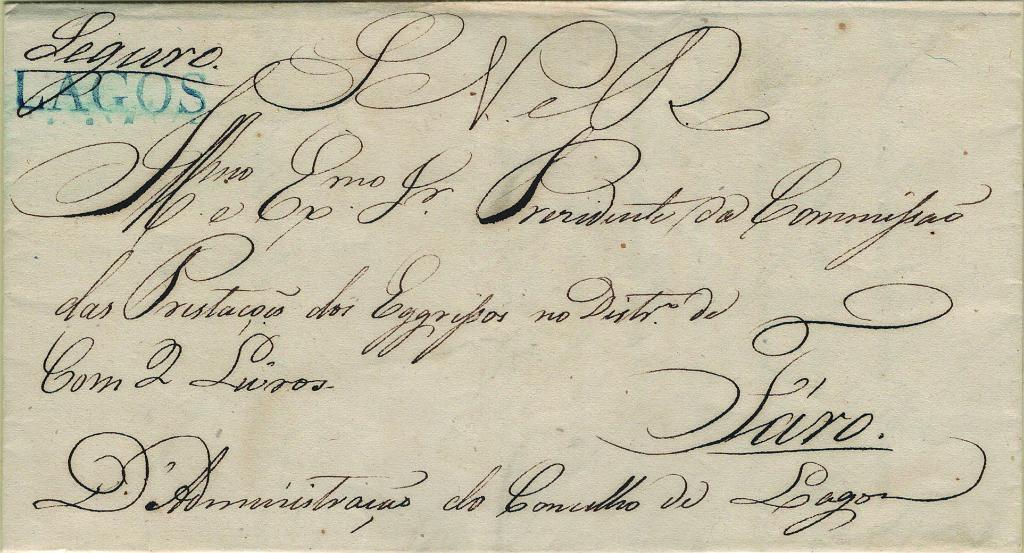 Seguro.
LAGOS
S. N. e R.
Illmo e Exmo Sr. Prezidente da Commissão
das Prestaçoĩs dos Eggressos no Distr.º de
Com 2 Livros
Fáro.
D'Administração do Concelho de Lagos